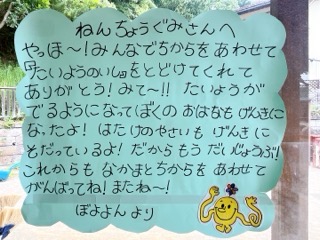 ねんちょうぐみさんへ
やっほ～！みんなでちからをあわせて
『たいようのいし』をとどけてくれて
ありがとう！みて～!! たいようが
でるようになってぼくのおはなもげんきに
なったよ！はたけのやさいもげんきに
そだっているよ！だからもうだいじょうぶ！
これからもなかまとちからをあわせて
がんばってね！またね～！
ぼよよんより